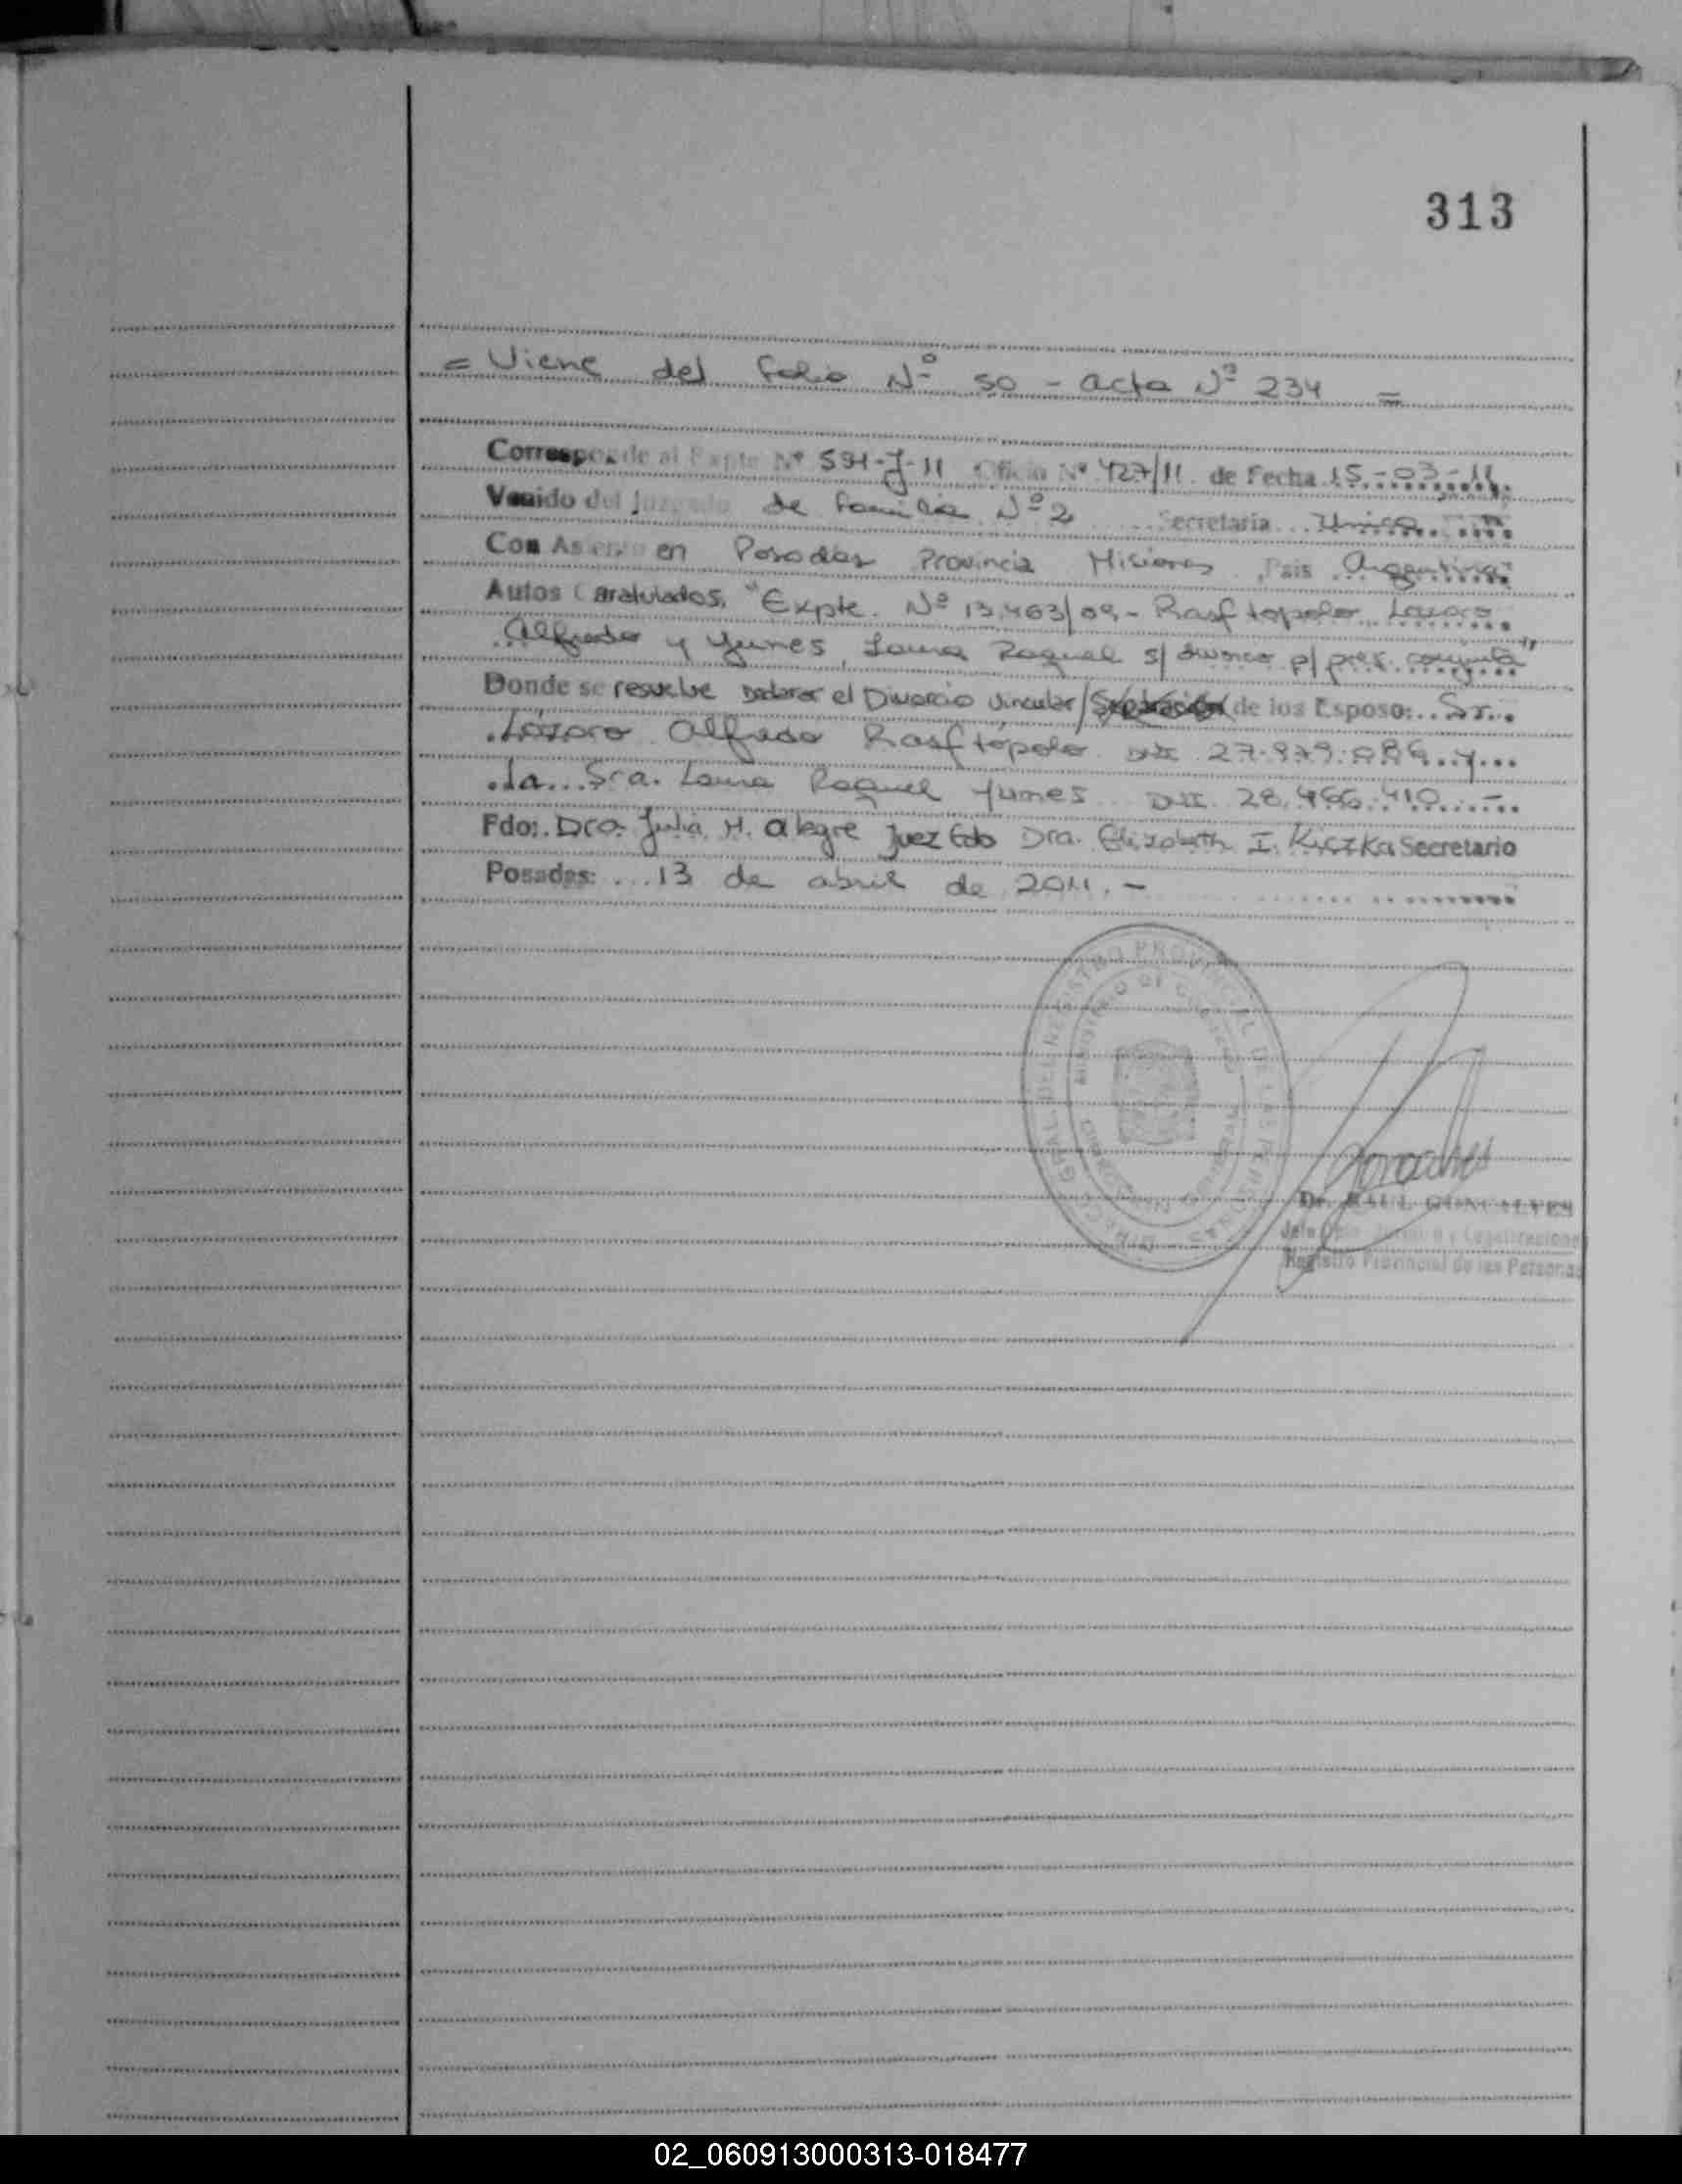 313
= Viene del folio Nº 50 - acta Nº 234 =
Corresponde al Expte Nº 591-J-11 Oficio Nº 427/11 de Fecha 15-03-11
Venido del Juzgado de Familia Nº 2 Secretaria Unica
Con Asiento en Posadas Provincia Misiones Pais Argentina
Autos Caratulados, "Expte. Nº 13.463/09 - Rasftopolo Lazaro
Alfredo y Yunes, Laura Raquel s/ divorcio p/ pres. conjunta"
Donde se resuelve Declarar el Divorcio Vincular/Separación de los Esposo: Sr.
Lázaro Alfredo Rasftópolo DNI 27.979.086 y
la Sra. Laura Raquel Yunes DNI 28.466.410 -
Fdo: Dra. Julia H. Alegre Juez Fdo Dra. Elizabeth I. Kiczka Secretario
Posadas: 13 de abril de 2011.-
Dr. RAUL GONCALVES
Registro Provincial de las Personas
02_060913000313-018477